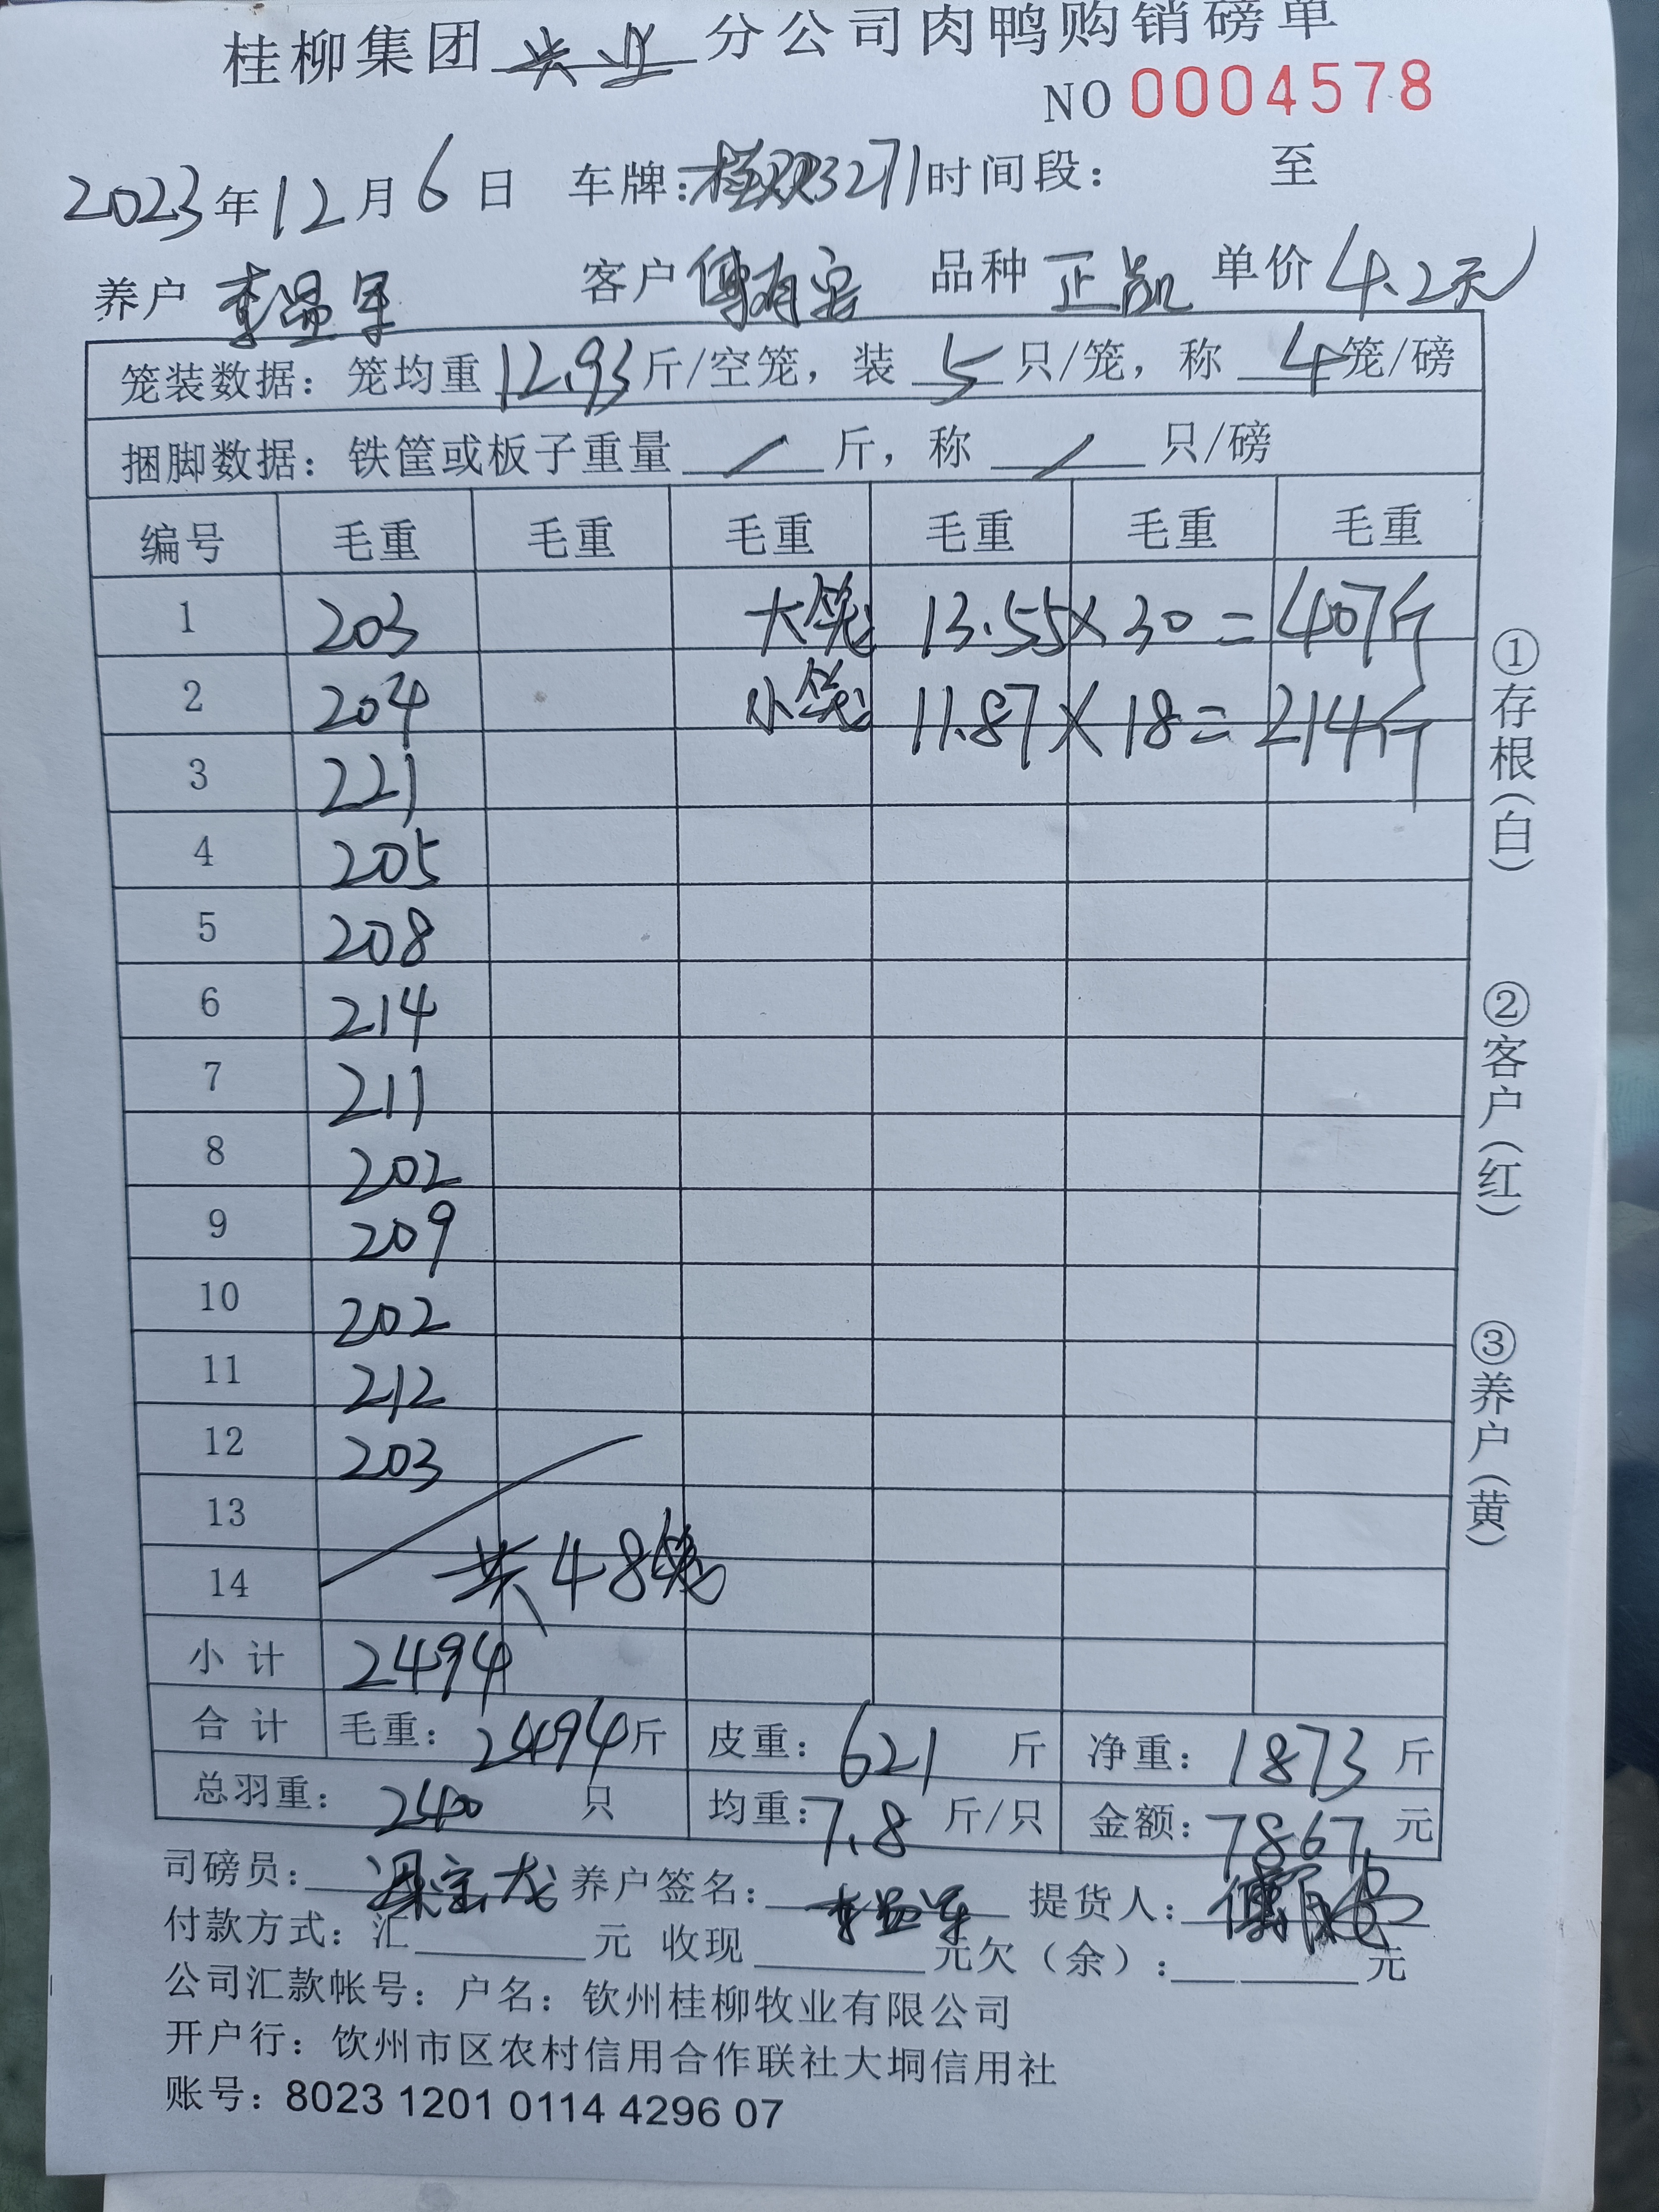 桂柳集团 兴业 分公司肉鸭购销磅单
NO 0004578
2023年12月6日 车牌: 3271 时间段: 至
养户 李益军 客户 品种 正凯 单价 4.2元
笼装数据: 笼均重 12.93 斤/空笼, 装 5 只/笼, 称 4 笼/磅
捆脚数据: 铁筐或板子重量 / 斤, 称 / 只/磅
编号 毛重 毛重 毛重 毛重 毛重 毛重
1 203 大笼 13.55×30=407斤
2 204 小笼 11.87×18=214斤
3 221
4 205
5 208
6 214
7 211
8 202
9 209
10 202
11 212
12 203
13
14 共48笼
小计 2494
合计 毛重: 2494斤 皮重: 621 斤 净重: 1873 斤
总羽重: 240 只 均重: 7.8 斤/只 金额: 7867 元
司磅员: 养户签名: 李益军 提货人:
付款方式: 汇 元 收现 元欠(余): 元
公司汇款帐号: 户名: 钦州桂柳牧业有限公司
开户行: 钦州市区农村信用合作联社大垌信用社
账号: 8023 1201 0114 4296 07
①存根(白)
②客户(红)
③养户(黄)